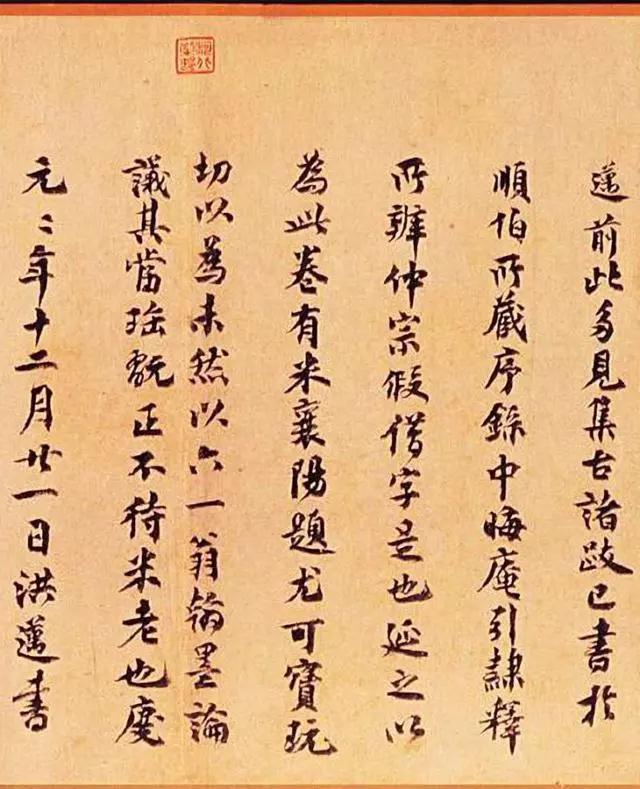 邁前此多見集古諸跋已書於
順伯所藏序錄中晦庵引隸釋
所辨仲宗假借字是也延之以
為此卷有米襄陽題尤可寶玩
切以為未然以六一翁翰墨論
議其當瑶翫正不待米老也慶
元二年十二月廿一日洪邁書